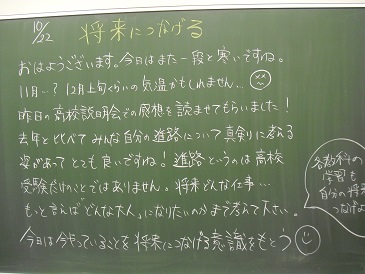 10/22
将来につなげる
おはようございます。今日はまた一段と寒いですね。
11月…?12月上旬くらいの気温かもしれません…
昨日の高校説明会での感想を読ませてもらいました!
去年と比べてみんな自分の進路について真剣に考える
姿があってとても良いですね!進路というのは高校
受験だけのことではありません。将来どんな仕事…
もっと言えば"どんな大人"になりたいのかまで考えて下さい。
今日は今やっていることを将来につなげる意識をもとう
各教科の
学習も
自分の将
つなげよ